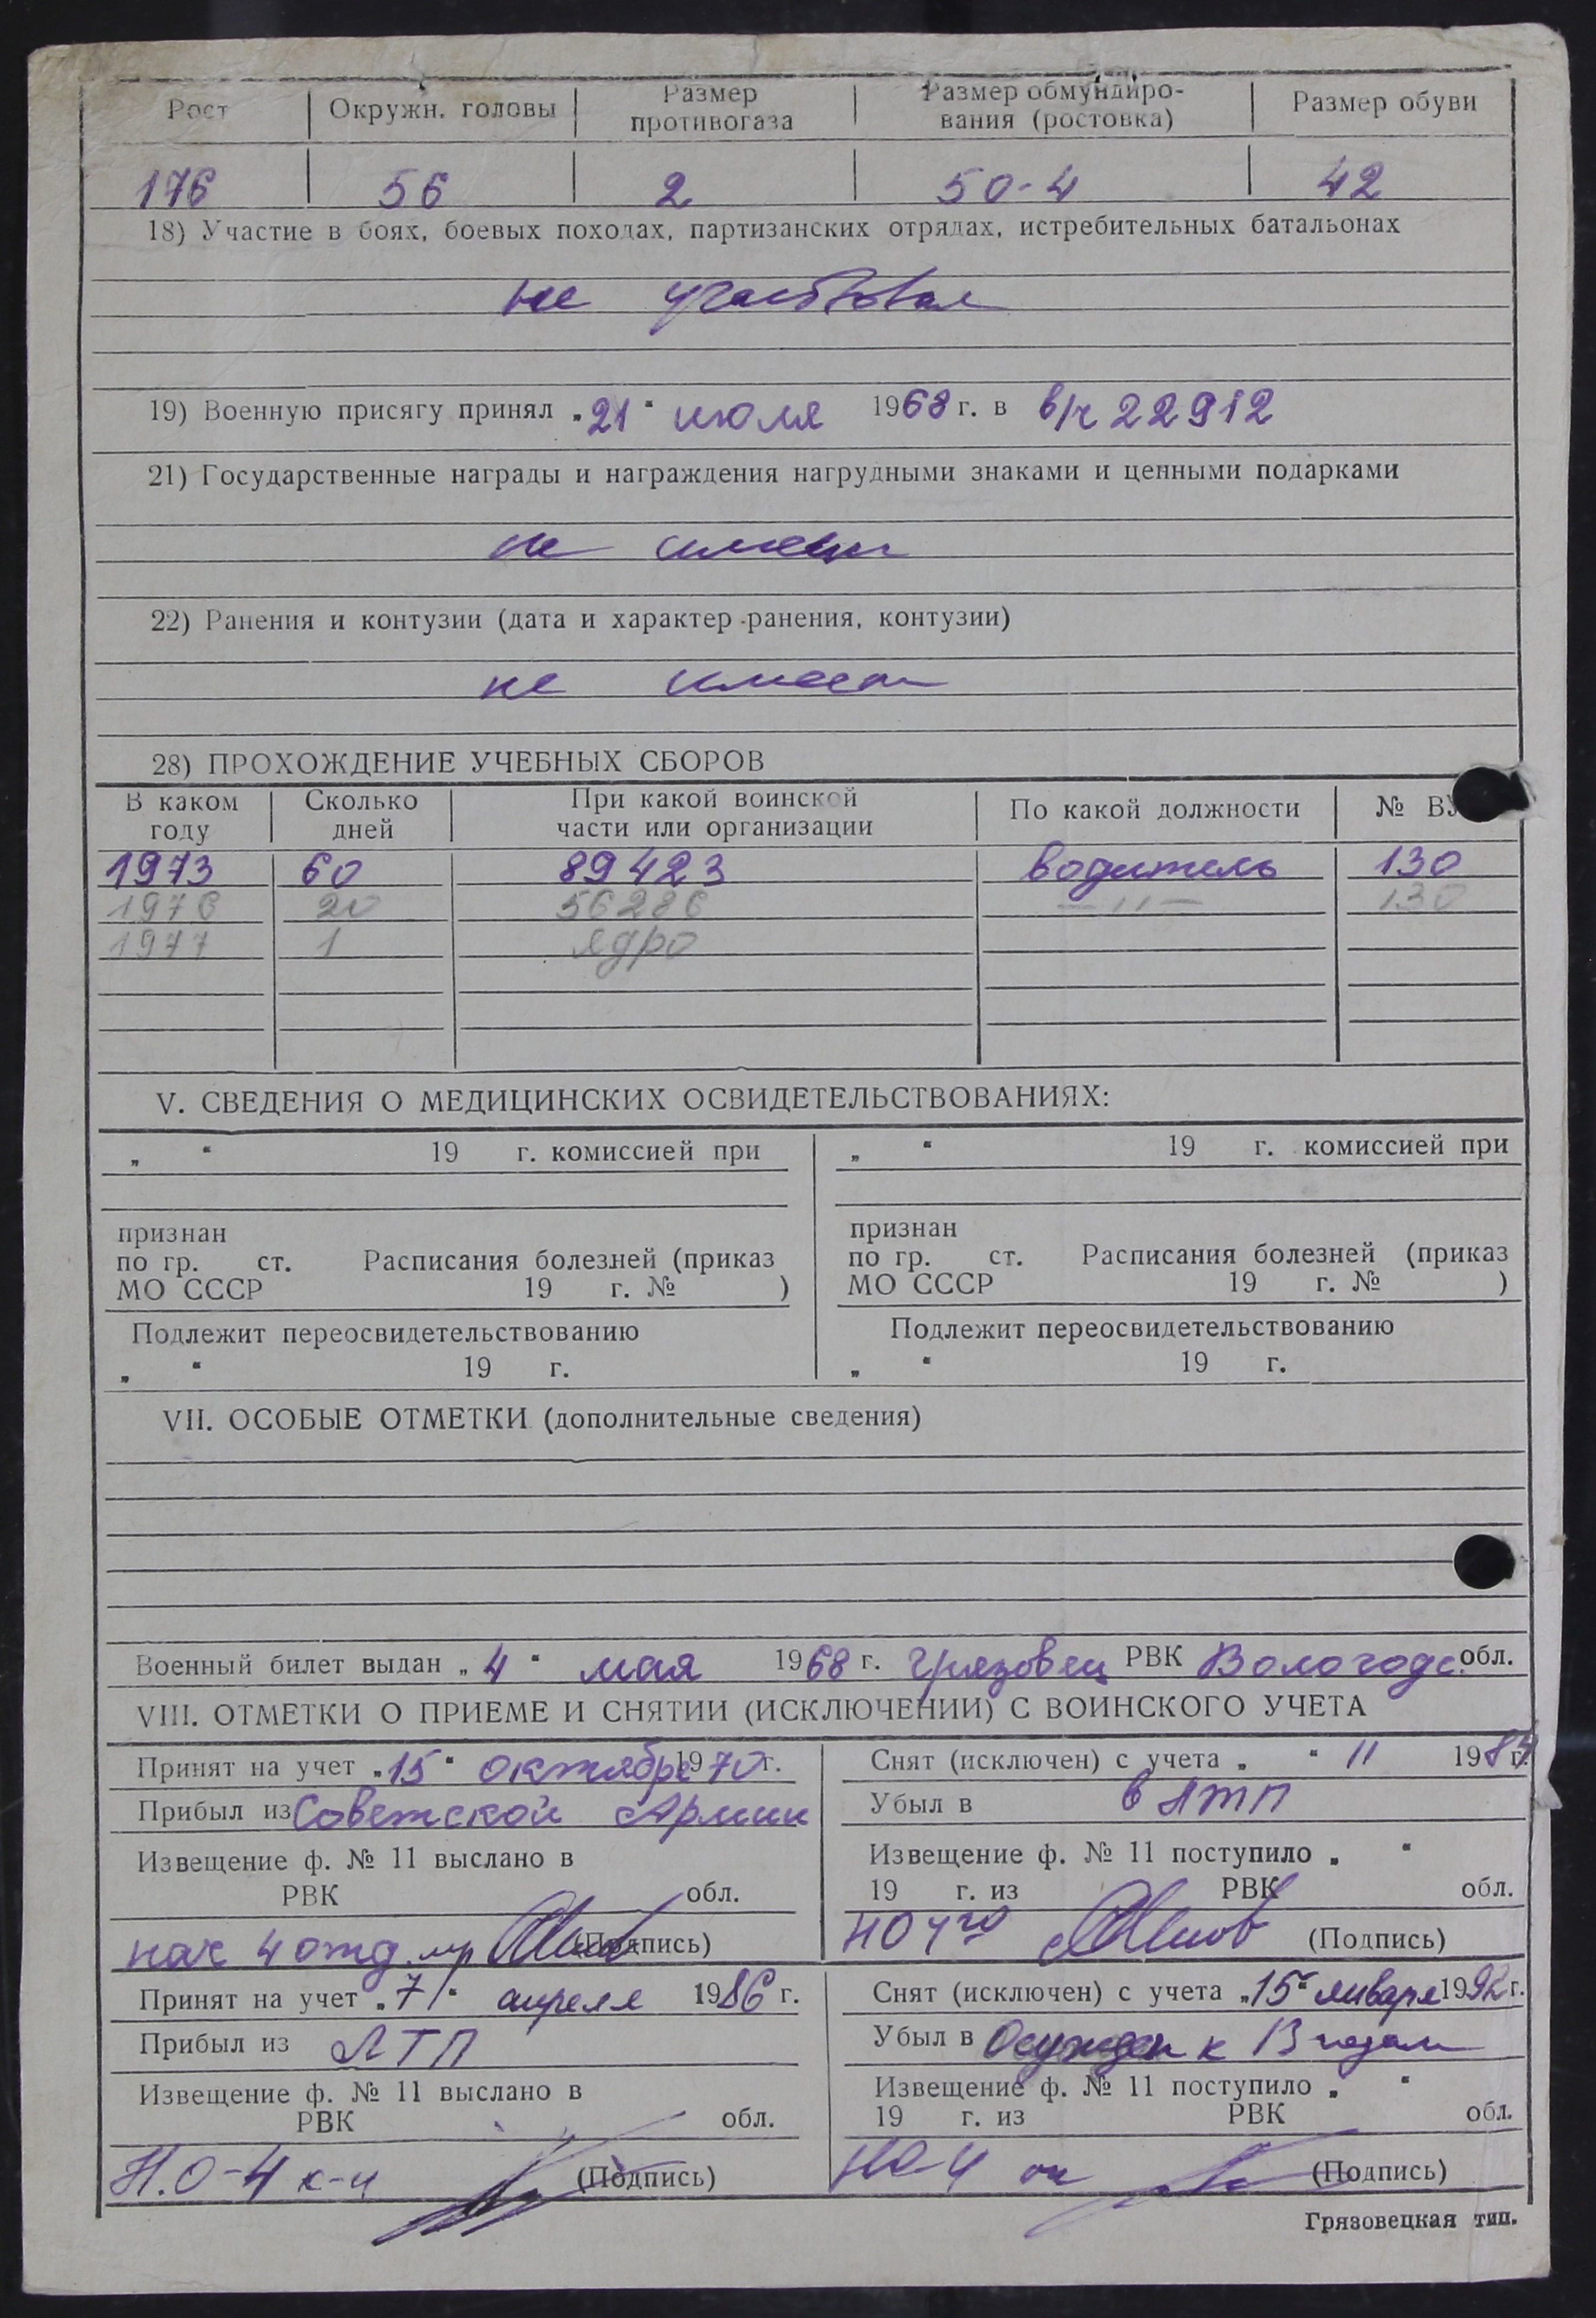 Рост Окружн. головы Размер противогаза Размер обмундиро-вания (ростовка) Размер обуви
176 56 2 50-4 42
18) Участие в боях, боевых походах, партизанских отрядах, истребительных батальонах
не участвовал
19) Военную присягу принял „21“ июля 1968 г. в в/ч 22912
21) Государственные награды и награждения нагрудными знаками и ценными подарками
не имеет
22) Ранения и контузии (дата и характер ранения, контузии)
не имеет
28) ПРОХОЖДЕНИЕ УЧЕБНЫХ СБОРОВ
В каком году Сколько дней При какой воинской части или организации По какой должности № ВУ
1973 60 89423 водитель 130
1976 20 56286 —〃— 130
1977 1 ядро
V. СВЕДЕНИЯ О МЕДИЦИНСКИХ ОСВИДЕТЕЛЬСТВОВАНИЯХ:
„ “ 19 г. комиссией при
признан
по гр. ст. Расписания болезней (приказ
МО СССР 19 г. № )
Подлежит переосвидетельствованию
„ “ 19 г.
„ “ 19 г. комиссией при
признан
по гр. ст. Расписания болезней (приказ
МО СССР 19 г. № )
Подлежит переосвидетельствованию
„ “ 19 г.
VII. ОСОБЫЕ ОТМЕТКИ (дополнительные сведения)
Военный билет выдан „4“ мая 1968 г. Грязовец РВК Вологодс. обл.
VIII. ОТМЕТКИ О ПРИЕМЕ И СНЯТИИ (ИСКЛЮЧЕНИИ) С ВОИНСКОГО УЧЕТА
Принят на учет „15“ октября 1970 г.
Прибыл из Советской Армии
Извещение ф. № 11 выслано в
РВК обл.
нач 4 отд. м-р (Подпись)
Снят (исключен) с учета „ “ 11 1984 г.
Убыл в в ЛТП
Извещение ф. № 11 поступило „ “
19 г. из РВК обл.
НО 4го (Подпись)
Принят на учет „7“ апреля 1986 г.
Прибыл из ЛТП
Извещение ф. № 11 выслано в
РВК обл.
Н.О-4 к-н (Подпись)
Снят (исключен) с учета „15“ января 1992 г.
Убыл в Осужден к 13 годам
Извещение ф. № 11 поступило „ “
19 г. из РВК обл.
НО-4 (Подпись)
Грязовецкая тип.